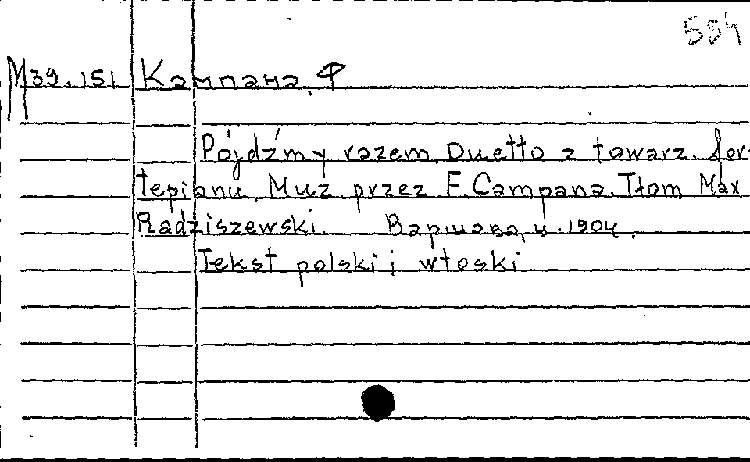 504
M39.151 Кампана, Ф
Pójdźmy razem. Duetto z towarz. for-
tepianu. Muz przez F. Campana. Tłom Max
Radziszewski. Варшава, ц. 1904.
Tekst polski i włoski